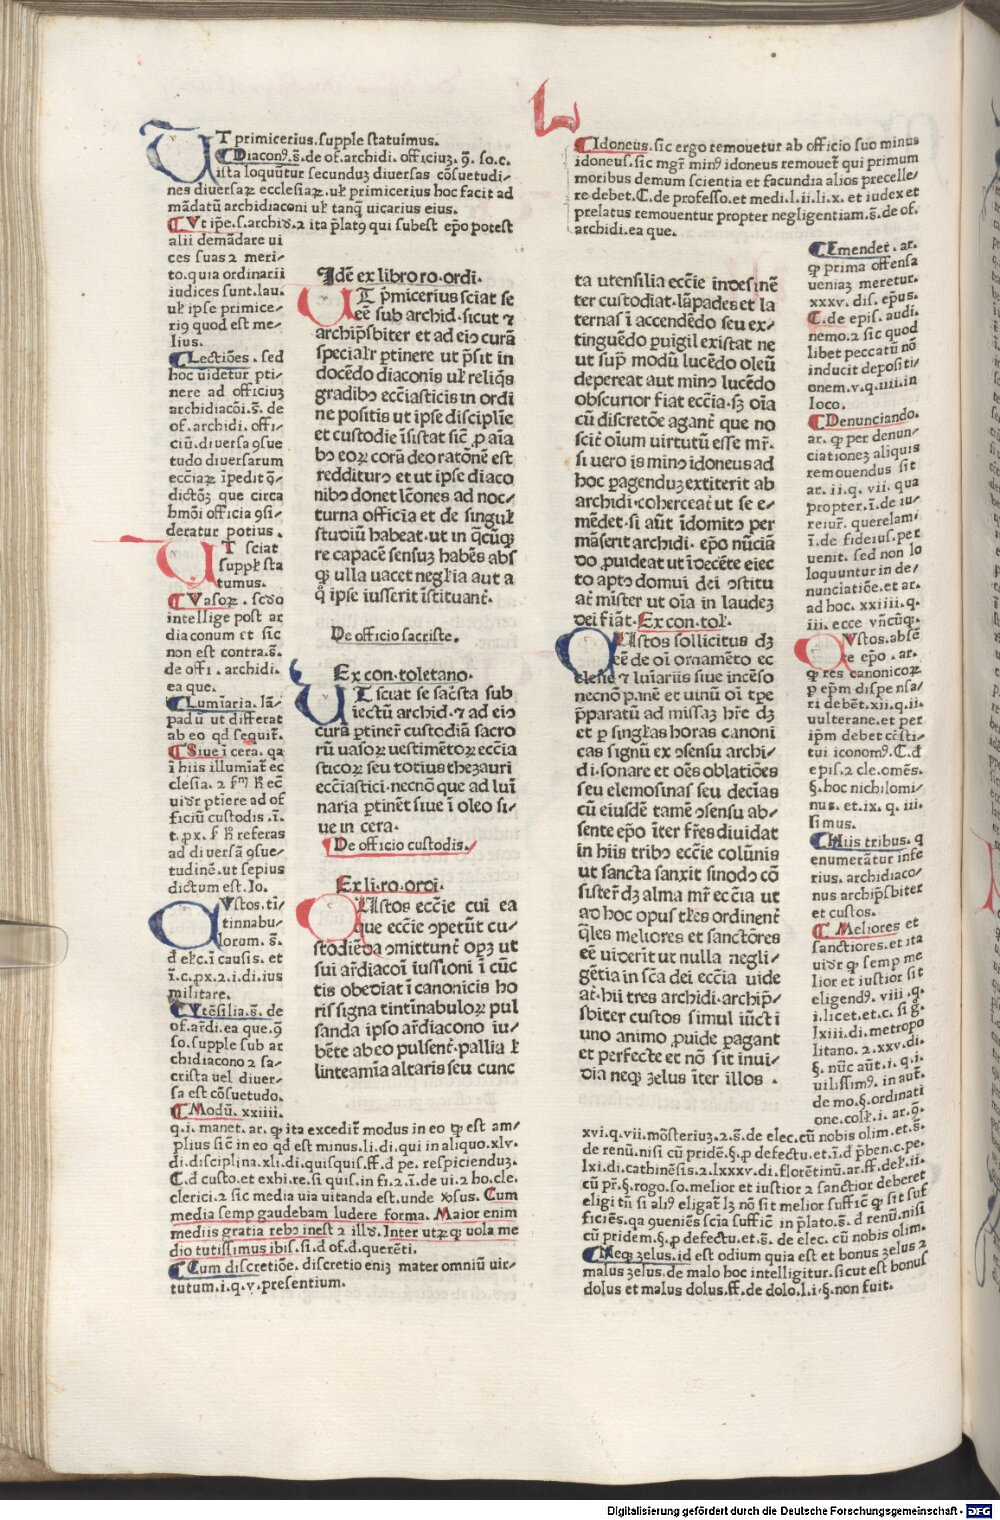 L
UT primicerius.supple statuimus.
Diacon⁹.s̄.de of.archidi. officiuꝫ. ꝯ̄. so.c.
ista loquūtur secunduꝫ diuersas cōsuetudi⸗
nes diuersaꝝ ecclesiaꝝ.ul̄ primicerius hoc facit ad
mādatū archidiaconi ul̄ tanq̄ uicarius eius.
Vt ip̄e.s.archid̄.⁊ ita p̄lat⁹ qui subest ep̄o potest
alii demādare ui
ces suas ⁊ meri⸗
to.quia ordinarii
iudices sunt.lau.
ul̄ ipse primice⸗
ri⁹ quod est me⸗
lius.
Lectiōes. sed
hoc uidetur pti⸗
nere ad officiuꝫ
archidiacōi.s̄. de
of.archidi. offi⸗
ciū.diuersa ꝯsue
tudo diuersarum
ecc̄iaꝝ īpedit ꝯ̄⸗
dictōꝫ que circa
hmōi officia ꝯsi⸗
deratur potius.
UT sciat
suppl̄e sta
tumus.
Vasoꝝ. secd̄o
intellige post ar
diaconum et sic̄
non est contra.s̄.
de offi. archidi.
ea que.
Lumīaria. lā⸗
padū ut differat
ab eo qd̄ sequit̄.
Siue ī cera. qa
ī hiis illumīat̄ ec
clesia. ⁊ fm̄ h̄ ec̄
uidr̄ ptiere ad of
ficiū custodis.ī.
t.px. f̄ h̄ referas
ad diuersā ꝯsue⸗
tudinē.ut sepius
dictum est. Io.
CVstos.tī⸗
tinnabu⸗
lorum. s̄.
d̄ el̄c.ī causis. et
ī.c.px.⁊.i.di.ius
militare.
Vtēsilia.s̄. de
of.ar̄di.ea que.ꝯ̄
so.supple sub ar
chidiacono ⁊ sa⸗
crista uel diuer⸗
sa est cōsuetudo.
Modū. xxiiii.
q.i. manet. ar. ꝙ ita excedit̄ modus in eo ꝙ est am⸗
plius sic̄ in eo qd̄ est minus.li.di.qui in aliquo.xlv.
di.disciplina.xli.di.quisquis.ff.d̄ pe. respiciendu3.
C.d̄ custo.et exhi.re.si quis.in fi.⁊.ī.de ui.⁊ ho.cle.
clerici.⁊ sic media uia uitanda est.unde v̄sus. Cum
media semp gaudebam ludere forma. Maior enim
mediis gratia rebꝰ inest ⁊ ill̄d. Inter utꝝꝙ uola me
dio tutissimus ibis.si.d̄ of.d.querēti.
Cum discretiōe. discretio eniꝫ mater omniū uir⸗
tutum.i.q.v.presentium.
Idē ex libro ro.ordi.
UT p̄micerius sciat se
eē sub archid.sicut ⁊
archip̄sbiter et ad eiꝰ curā
specialr̄ ꝑtinere ut p̄sit in
docēdo diaconis ul̄ reliq̄s
gradibꝰ ecc̄iasticis in ordi
ne positis ut ipse disciplīe
et custodie īsistat sic̄ ꝓ aīa
bꝰ eoꝝ corā deo ratōnē est
redditurꝰ et ut ipse diaco
nibꝰ donet lc̄ones ad noc⸗
turna officīa et de singul̄
studiū habeat.ut in q̄cūqꝫ
re capacē sensuꝫ habēs abs
qꝫ ulla uacet negl̄ia aut a
q̄ ipse iusserit īstituant̄.
De officio sacriste.
Ex con.toletano.
UT sciat se sac̄sta sub
iectū archid.⁊ ad eiꝰ
curā ꝑtiner̄ custodiā sacro
rū uasoꝝ uestimētoꝝ ecc̄ia
sticoꝝ seu totius thezauri
ecc̄iastici.necnō que ad luī
naria ꝑtinēt siue ī oleo si⸗
ue in cera.
De officio custodis.
Ex li.ro.ordi.
CUstos ecc̄ie cui ea
que ecc̄ie ꝯpetūt cu⸗
stodiēda ꝯmittunt̄ opꝫ ut
sui ar̄diacoī iussioni ī cūc
tis obediat ī canonicis ho
ris signa tintinabuloꝝ pul
sanda ipso ar̄diacono iu⸗
bēte ab eo pulsent̄.pallia l̄
linteamīa altaris seu cunc
Idoneus.sic ergo remouetur ab officio suo minus
idoneus.sic mgr̄ min⁹ idoneus remouet̄ qui primum
moribus demum scientia et facundia alios precelle⸗
re debet.C.de professo.et medi.l.ii.li.x. et iudex et
prelatus remouentur propter negligentiam.s̄.de of.
archidi.ea que.
ta utensilia ecc̄ie indesinē
ter custodiat.lāpades et la
ternas ī accendēdo seu ex⸗
tinguēdo ꝑuigil existat ne
ut sup̄ modū lucēdo oleū
depereat aut minꝰ lucēdo
obscurior fiat ecc̄ia.sꝫ oīa
cū discretōe agant̄ que no
scit̄ oīum uirtutū esse mr̄.
si uero is minꝰ idoneus ad
hoc ꝑagenduꝫ extiterit ab
archidi.coherceat̄ ut se e⸗
mēdet.si aūt īdomitꝰ per
māserit archidi. ep̄o nūciā
do ꝓuideat ut īdecēte eiec
to aptꝰ domui dei ꝯstitu
at̄ mīster ut oīa in laudeꝫ
dei fīat̄. Ex con.tol.
CUstos sollicitus dꝫ
eē de oī ornamēto ec
clesie ⁊ luīariis siue incēso
necnō panē et uinū oī tpe
p̄paratū ad missaꝫ hr̄e dꝫ
et ꝑ singl̄as horas canoni
cas signū ex ꝯsensu archi⸗
di.sonare et oēs oblatiōes
seu elemosinas seu decīas
cū eiusdē tamē ꝯsensu ab⸗
sente ep̄o īter fr̄es diuidat
in hiis tribꝰ ecc̄ie colūnis
ut sancta sanxit sinodꝰ cō
sister̄ dꝫ alma mr̄ ecc̄ia ut
ad hoc opus tl̄es ordinent̄
q̄les meliores et sanctōres
eē uiderit ut nulla negli⸗
gētia in sc̄a dei ecc̄ia uide
at̄.hii tres archidi.archip̄⸗
sbiter custos simul iūcti
uno animo ꝓuide ꝑagant
et perfecte et nō sit inui⸗
dia neqꝫ ꝫelus īter illos.
Emendet̄. ar.
ꝙ prima offensa
ueniaꝫ meretur.
xxxv. dis. ep̄us.
C.de epis. audi.
nemo.⁊ sic quod
libet peccatū nō
inducit depositi⸗
onem.v.q.iiii.in
loco.
Denunciando.
ar. ꝙ per denun⸗
ciationeꝫ aliquis
remouendus sit
ar. ii.q. vii. qua
propter.ī.de iu⸗
reiur̄. querelam
ī.de fideius.per
uenit. sed non lo
loquuntur in de⸗
nunciatiōe.et ar.
ad hoc. xxiiii.q.
iii. ecce vnc̄uqꝫ.
CVstos.absē
te epō. ar.
ꝙ res canonicoꝝ
p ep̄m dispensa⸗
ri debēt.xii.q.ii.
uulterane.et per
ip̄m debet cc̄sti⸗
tui iconom⁹.C.d̄
epis.⁊ cle.omēs.
§.hoc nichilomi⸗
nus. et.ix. q. iii.
si mus.
Hiis tribus. q
enumerātur infe
rius. archidiaco⸗
nus archip̄sbiter
et custos.
Meliores et
sanctiores.et ita
uidr̄ ꝙ semp me
lior et iustior sit
eligend⁹. viii.q.
i.licet.et.c. si g̊.
lxiii.di.metropo
litano. ⁊.xxv.di.
§. nūc aūt.i. q.i.
uilissim⁹. in aut̄.
de mo.§.ordinati
one.col̄l.i. ar.ꝯ̄.
xvi.q.vii.mōsteriuꝫ.⁊.s̄.de elec.cū nobis olim.et.s̄.
de renū.nisi cū pridē.§.ꝓ defectu.et.ī.d̄ p̄ben.c.pe.
lxi.di.cathinēsis.⁊.lxxxv.di.florētinū.ar.ff.del̄.ii.
cū pr̄.§.rogo.so.melior et iustior ⁊ sanctior deberet
eligi tn̄ si ali⁹ eligat̄ lꝫ nō sit melior suffic̄ ꝙ sit suf
ficiēs.qa ꝯueniēs sc̄ia suffic̄ in p̄lato.s̄. d̄ renū.nisi
cū pridem.§.ꝓ defectu.et.s̄. de elec. cū nobis olim.
Neqꝫ ꝫelus.id est odium quia est et bonus ꝫelus ⁊
malus ꝫelus.de malo hoc intelligitur.sicut est bonus
dolus et malus dolus.ff.de dolo.l.i.§.non fuit.
Digitalisierung gefördert durch die Deutsche Forschungsgemeinschaft - DFG